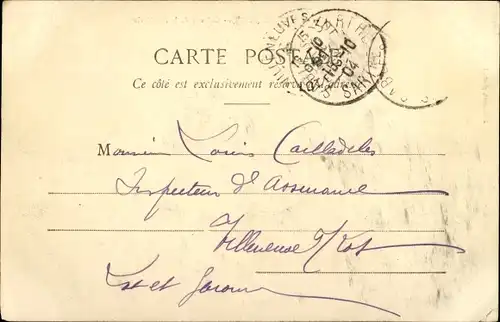 CARTE POSTALE
Ce côté est exclusivement réservé
Monsieur Louis Cailladeles
Inspecteur d'Assurance
Villeneuve s/Lot
Lot et Garonne